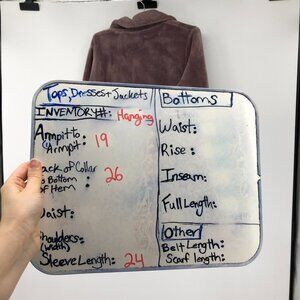 Tops, Dresses + Jackets
INVENTORY#: Hanging
Armpit to Armpit: 19
Back of Collar
to Bottom of Hem: 26
Waist:
Shoulders:
(width)
Sleeve Length: 24
Bottoms
Waist:
Rise:
Inseam:
Full Length:
Other
Belt Length:
Scarf length: